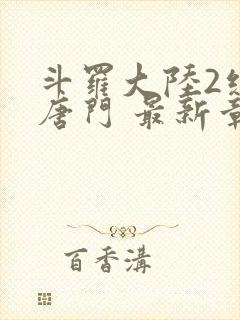 斗羅大陸2
唐門 最新章
百香溝